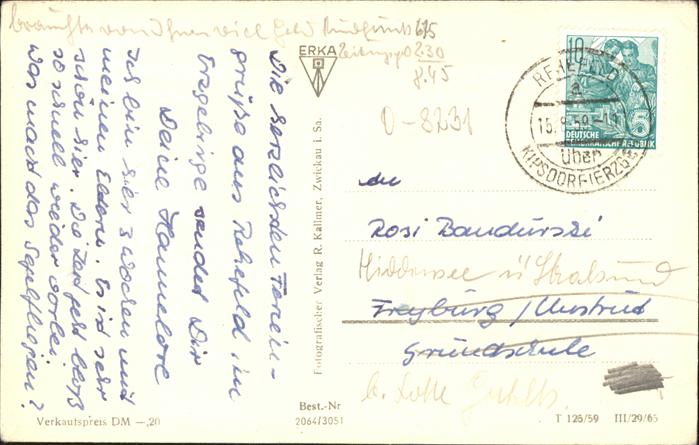 brauchte von Ihnen viel Geld Rundfunk 6.15
Zeitung pp 0 2.30
8.45
0-8231
ERKA
Die herzlichsten Ferien-
grüße aus Rehefeld im
Erzgebirge sendet Dir
Deine Hannelore
Ich bin hier 3 Wochen mit
meinen Eltern. Es ist sehr
schön hier. Die Zeit geht bloß
so schnell wieder vorbei.
Was macht das Segelfliegen?
Verkaufspreis DM —,20
Fotografischer Verlag R. Kallmer, Zwickau i. Sa.
Best.-Nr
2064/3051
REHEFELD
a
15.8.59
über
KIPSDORF (ERZGEB)
DEUTSCHE
DEMOKRATISCHE REPUBLIK
10
5
An
Rosi Bandurski
Hiddensee ü Stralsund
Freyburg/Unstrut
Grundschule
b. Lotte
T 125/59 III/29/65